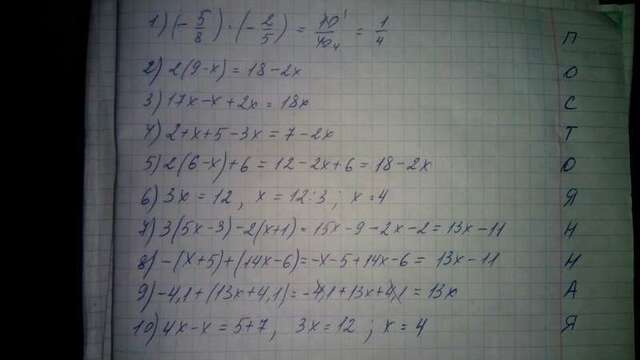 1) (- 5/8) · (- 2/5) = 10¹/40₄ = 1/4 П
2) 2(9-x) = 18-2x О
3) 17x-x+2x = 18x С
4) 2+x+5-3x = 7-2x Т
5) 2(6-x)+6 = 12-2x+6 = 18-2x О
6) 3x = 12, x = 12:3; x=4 Я
7) 3(5x-3)-2(x+1)=15x-9-2x-2=13x-11 Н
8) -(x+5)+(14x-6)=-x-5+14x-6= 13x-11 Н
9) -4,1+(13x+4,1)=-4,1+13x+4,1=13x А
10) 4x-x = 5+7, 3x=12 ; x=4 Я